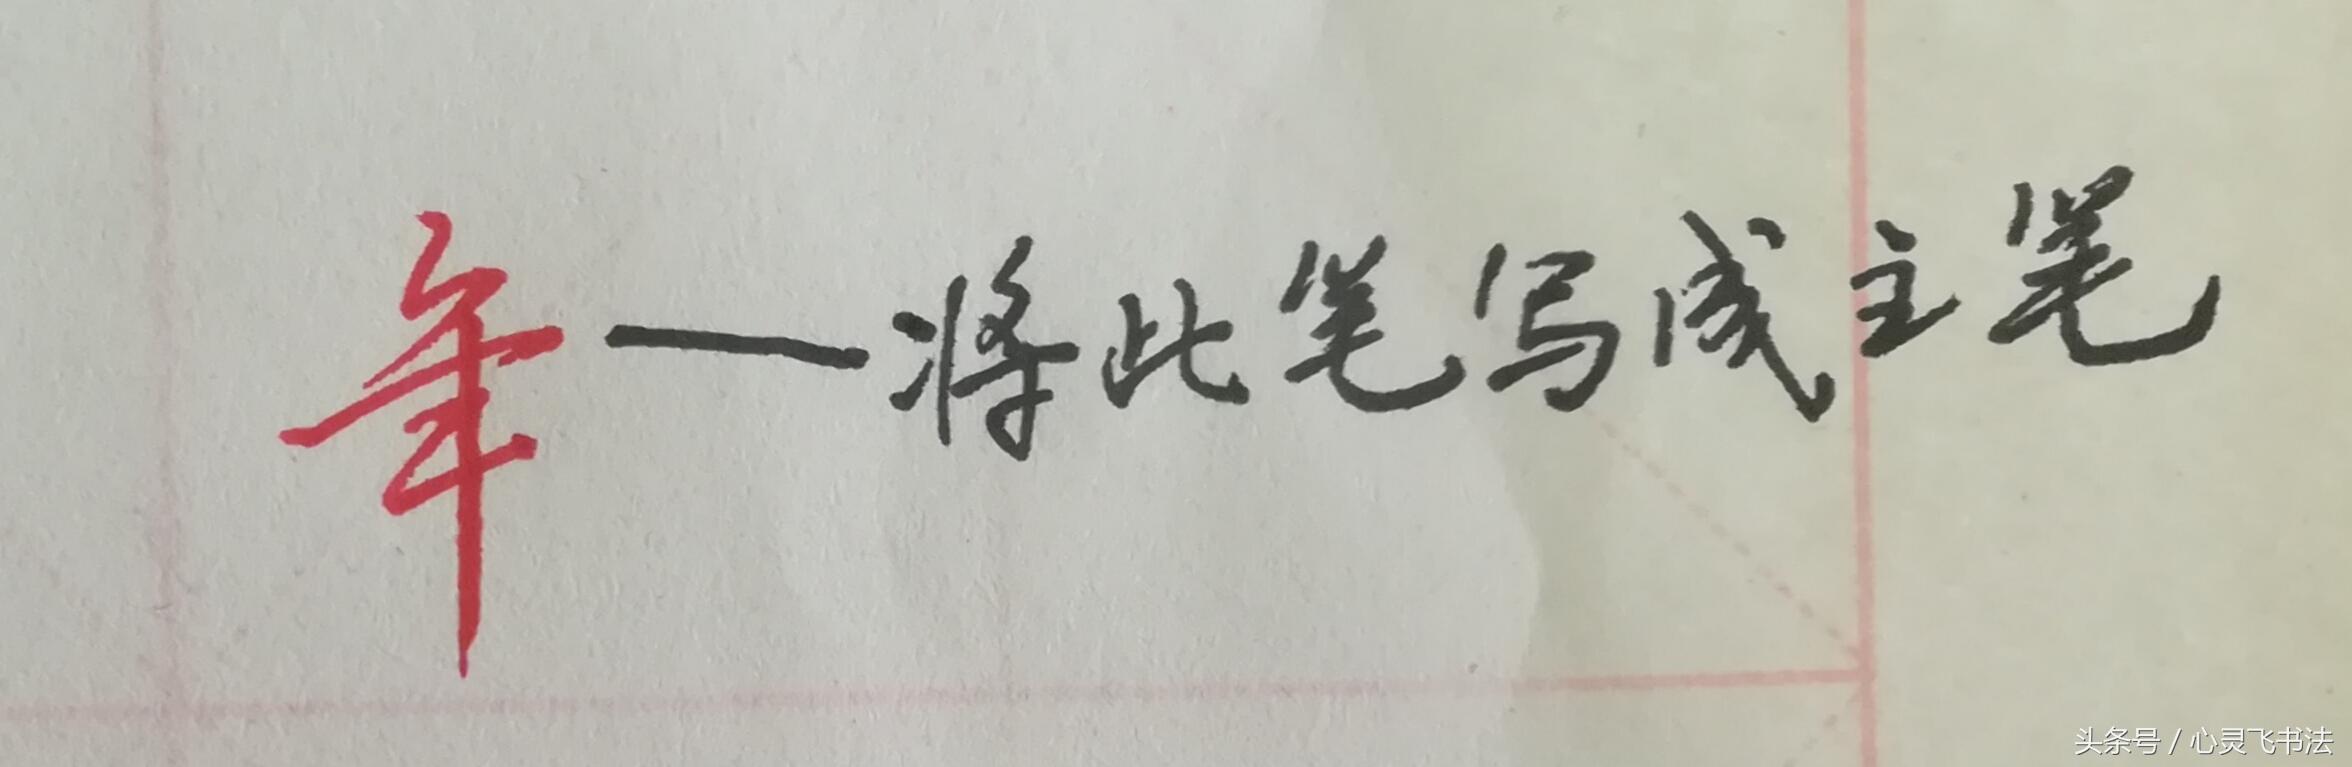 年一将此笔写成主笔
头条号 / 心灵飞书法